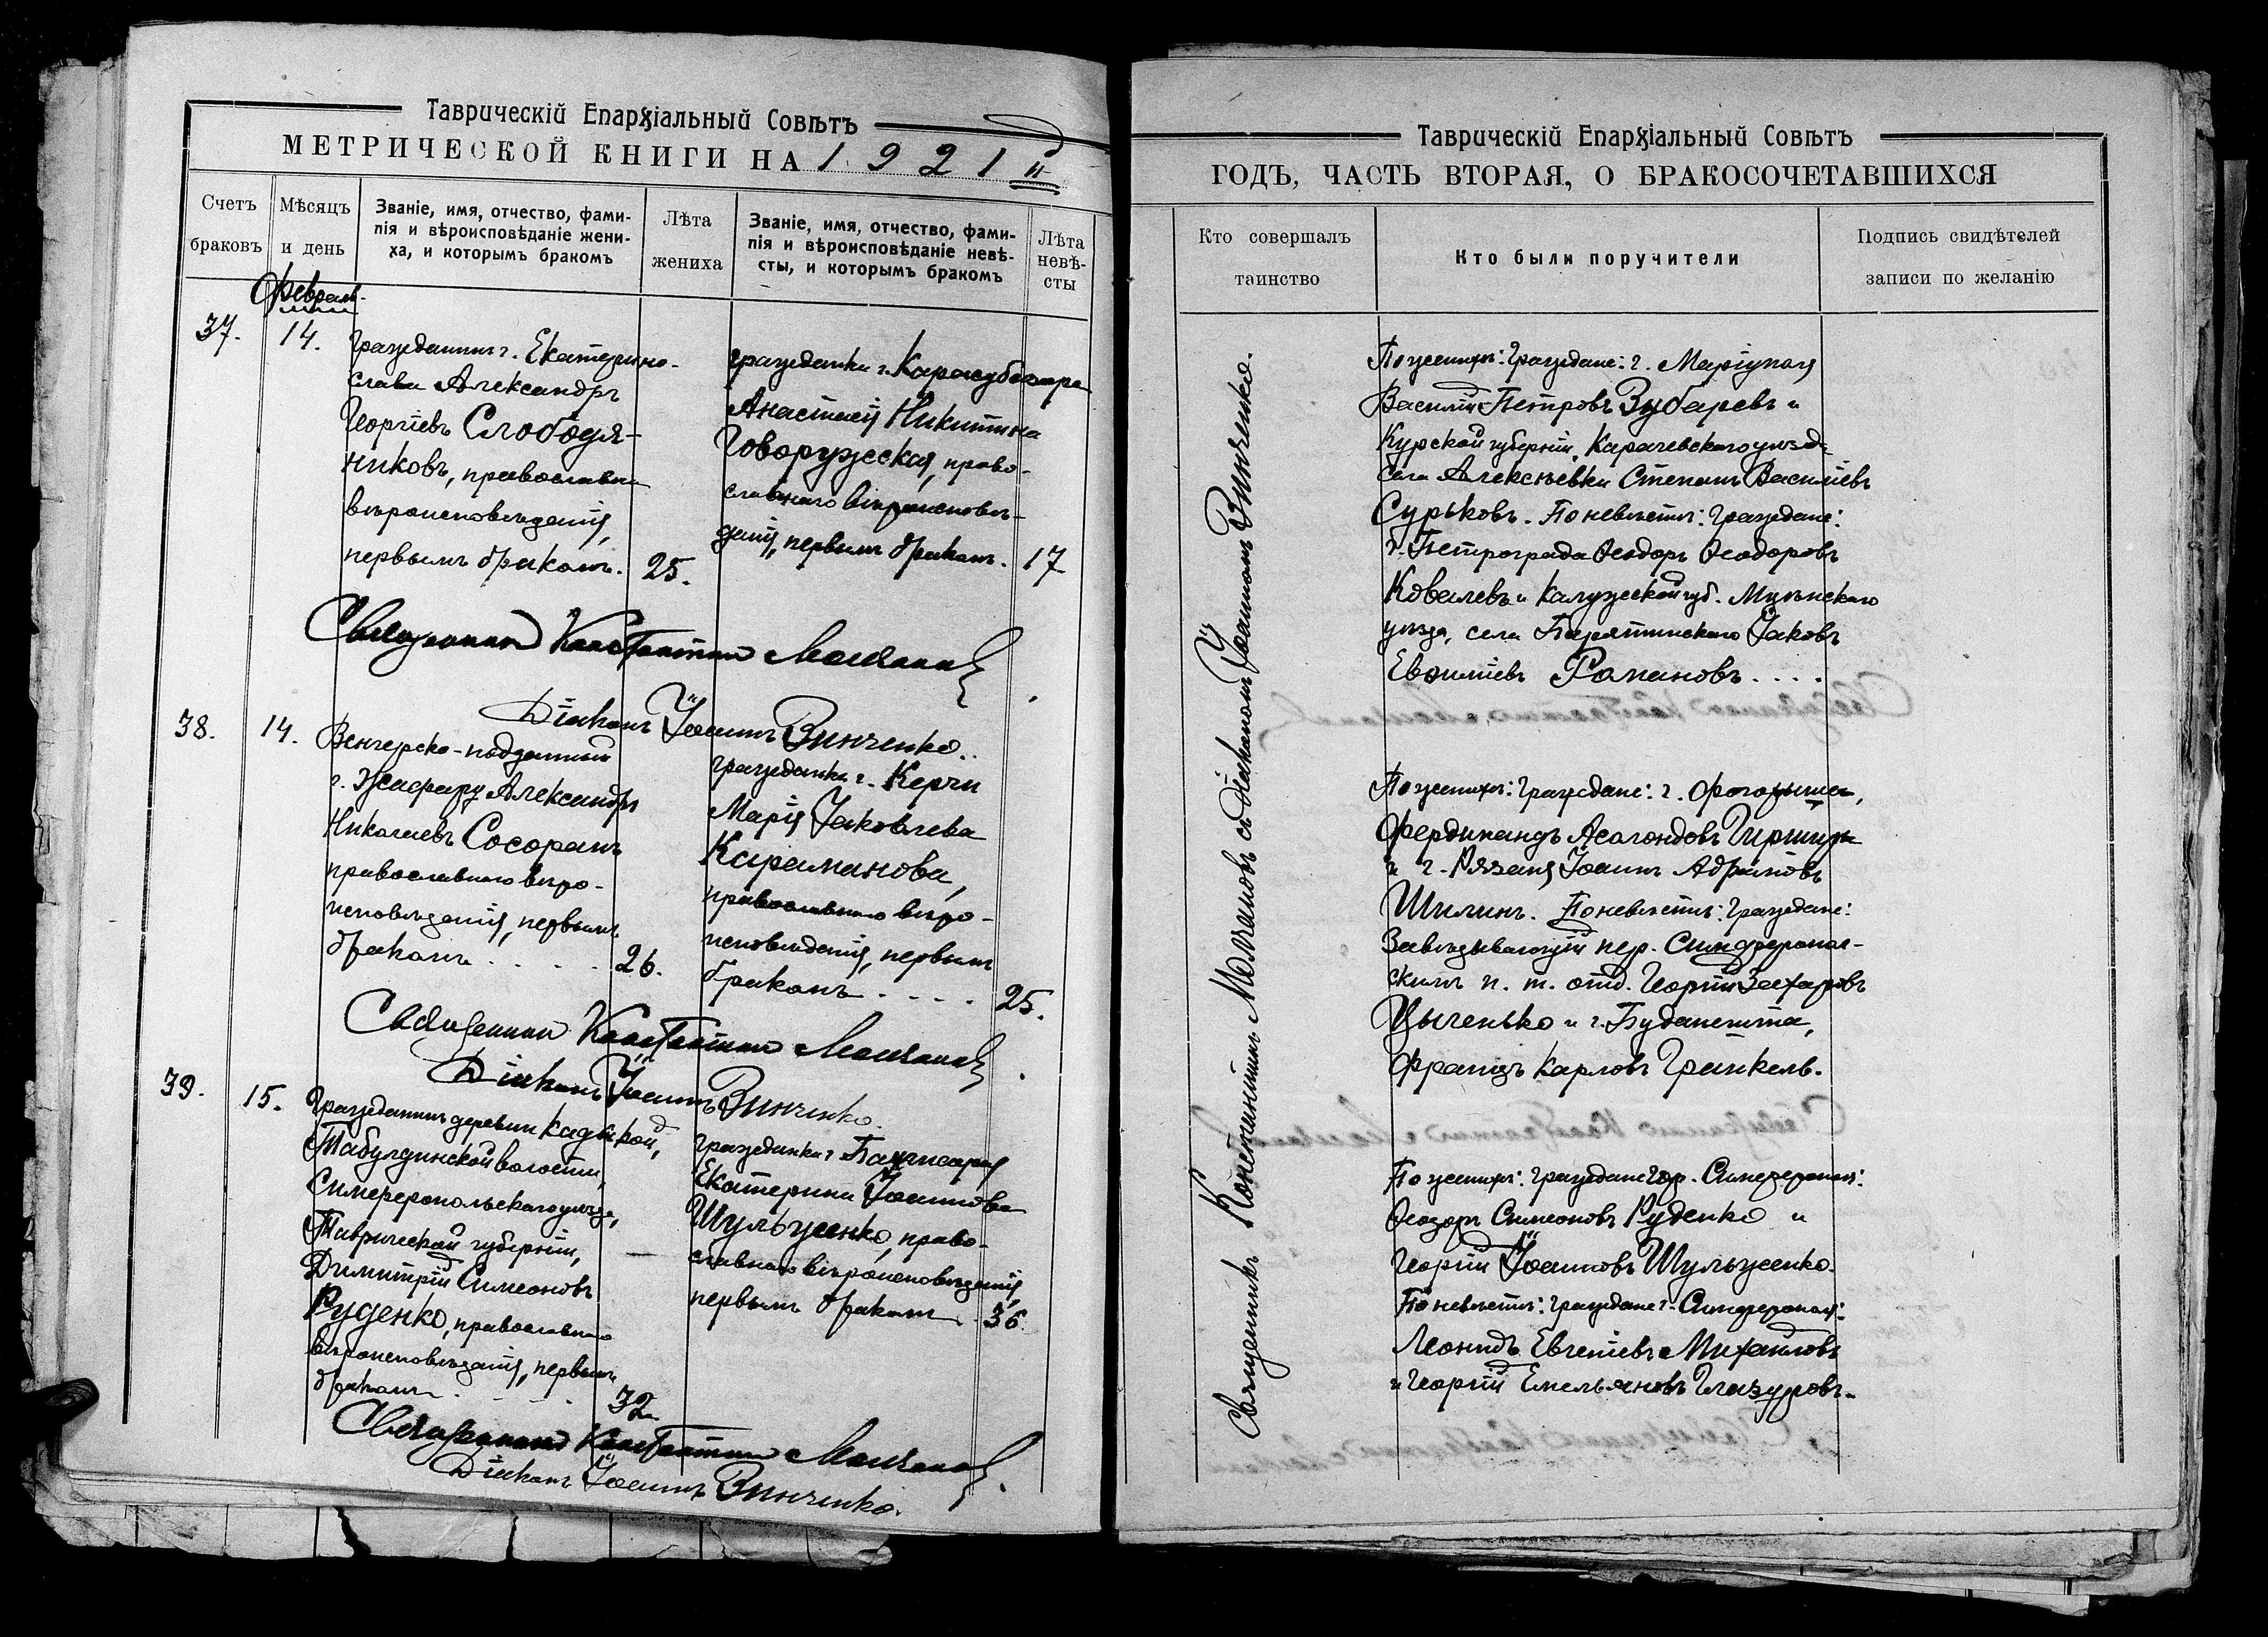 Таврическій Епархіальный Совѣтъ
МЕТРИЧЕСКОЙ КНИГИ НА 1921 й
Счетъ браковъ
Мѣсяцъ и день
Званіе, имя, отчество, фами-
лія и вѣроисповѣданіе жени-
ха, и которымъ бракомъ
Лѣта жениха
Званіе, имя, отчество, фами-
лія и вѣроисповѣданіе невѣ-
сты, и которымъ бракомъ
Лѣта невѣ-
сты
Февраль
37.
14.
Гражданинъ г. Екатерино-
слава Александръ
Георгіевъ Слободя-
никовъ, православн
вѣроисповѣданія,
первымъ бракомъ.
25.
гражданка г. Карасубазара
Анастасія Никитина
Говоружеская, право-
славнаго вѣроисповѣ-
данія, первымъ бракомъ.
17
Священникъ Константинъ Молчановъ
Діаконъ Іоаннъ Винченко.
38.
14.
Венгерско-подданный
г. Александръ
Николаевъ Сосоранъ
православнаго вѣро-
исповѣданія, первымъ
бракомъ
26.
гражданка г. Керчи
Марія Іаковлева
Караманова,
православнаго вѣро-
исповѣданія, первымъ
бракомъ
25.
Священникъ Константинъ Молчановъ
Діаконъ Іоаннъ Винченко.
39.
15.
Гражданинъ деревни
Табулдинской волости,
Симферопольскаго уѣзда,
Таврической губерніи,
Димитрій Симеоновъ
Руденко, православнаго
вѣроисповѣданія, первымъ
бракомъ
32
гражданка г. Бахчисарая
Екатерина Іоаннова
Шульженко, право-
славнаго вѣроисповѣданія,
первымъ бракомъ
36.
Священникъ Константинъ Молчановъ
Діаконъ Іоаннъ Винченко.
Таврическій Епархіальный Совѣтъ
ГОДЪ, ЧАСТЬ ВТОРАЯ, О БРАКОСОЧЕТАВШИХСЯ
Кто совершалъ
таинство
Кто были поручители
Подпись свидѣтелей
записи по желанію
Священникъ Константинъ Молчановъ съ діакономъ Іоанномъ Винченко.
По женихѣ: граждане: г. Маріуполя
Василій Петровъ Зубаревъ и
Курской губерніи, Карачевскаго уѣзд.
села Алексѣевки Степанъ Василіевъ
Сурьковъ. По невѣстѣ: граждане:
г. Петрограда Ѳеодоръ Ѳеодоровъ
Ковалевъ и Калужской губ.
уѣзда, села Барятинскаго Іаковъ
Евѳиміевъ Романовъ
По женихѣ: граждане: г.
Фердинандъ
и г. Рязаня Іоаннъ Адріановъ
Шилинъ. По невѣстѣ: граждане:
Завѣдывающій пер. Симферополь-
скимъ п. т. отд. Георгій Захаровъ
Цыленько и г. Будапешта,
Францъ Карловъ Гранкель.
По женихѣ: граждане гор. Симферополя:
Ѳеодоръ Симеоновъ Руденко и
Георгій Іоанновъ Шульженко.
По невѣстѣ: граждане г. Симферополя:
Леонидъ Евгеніевъ Михаиловъ
и Георгій Емельяновъ Глазуровъ.